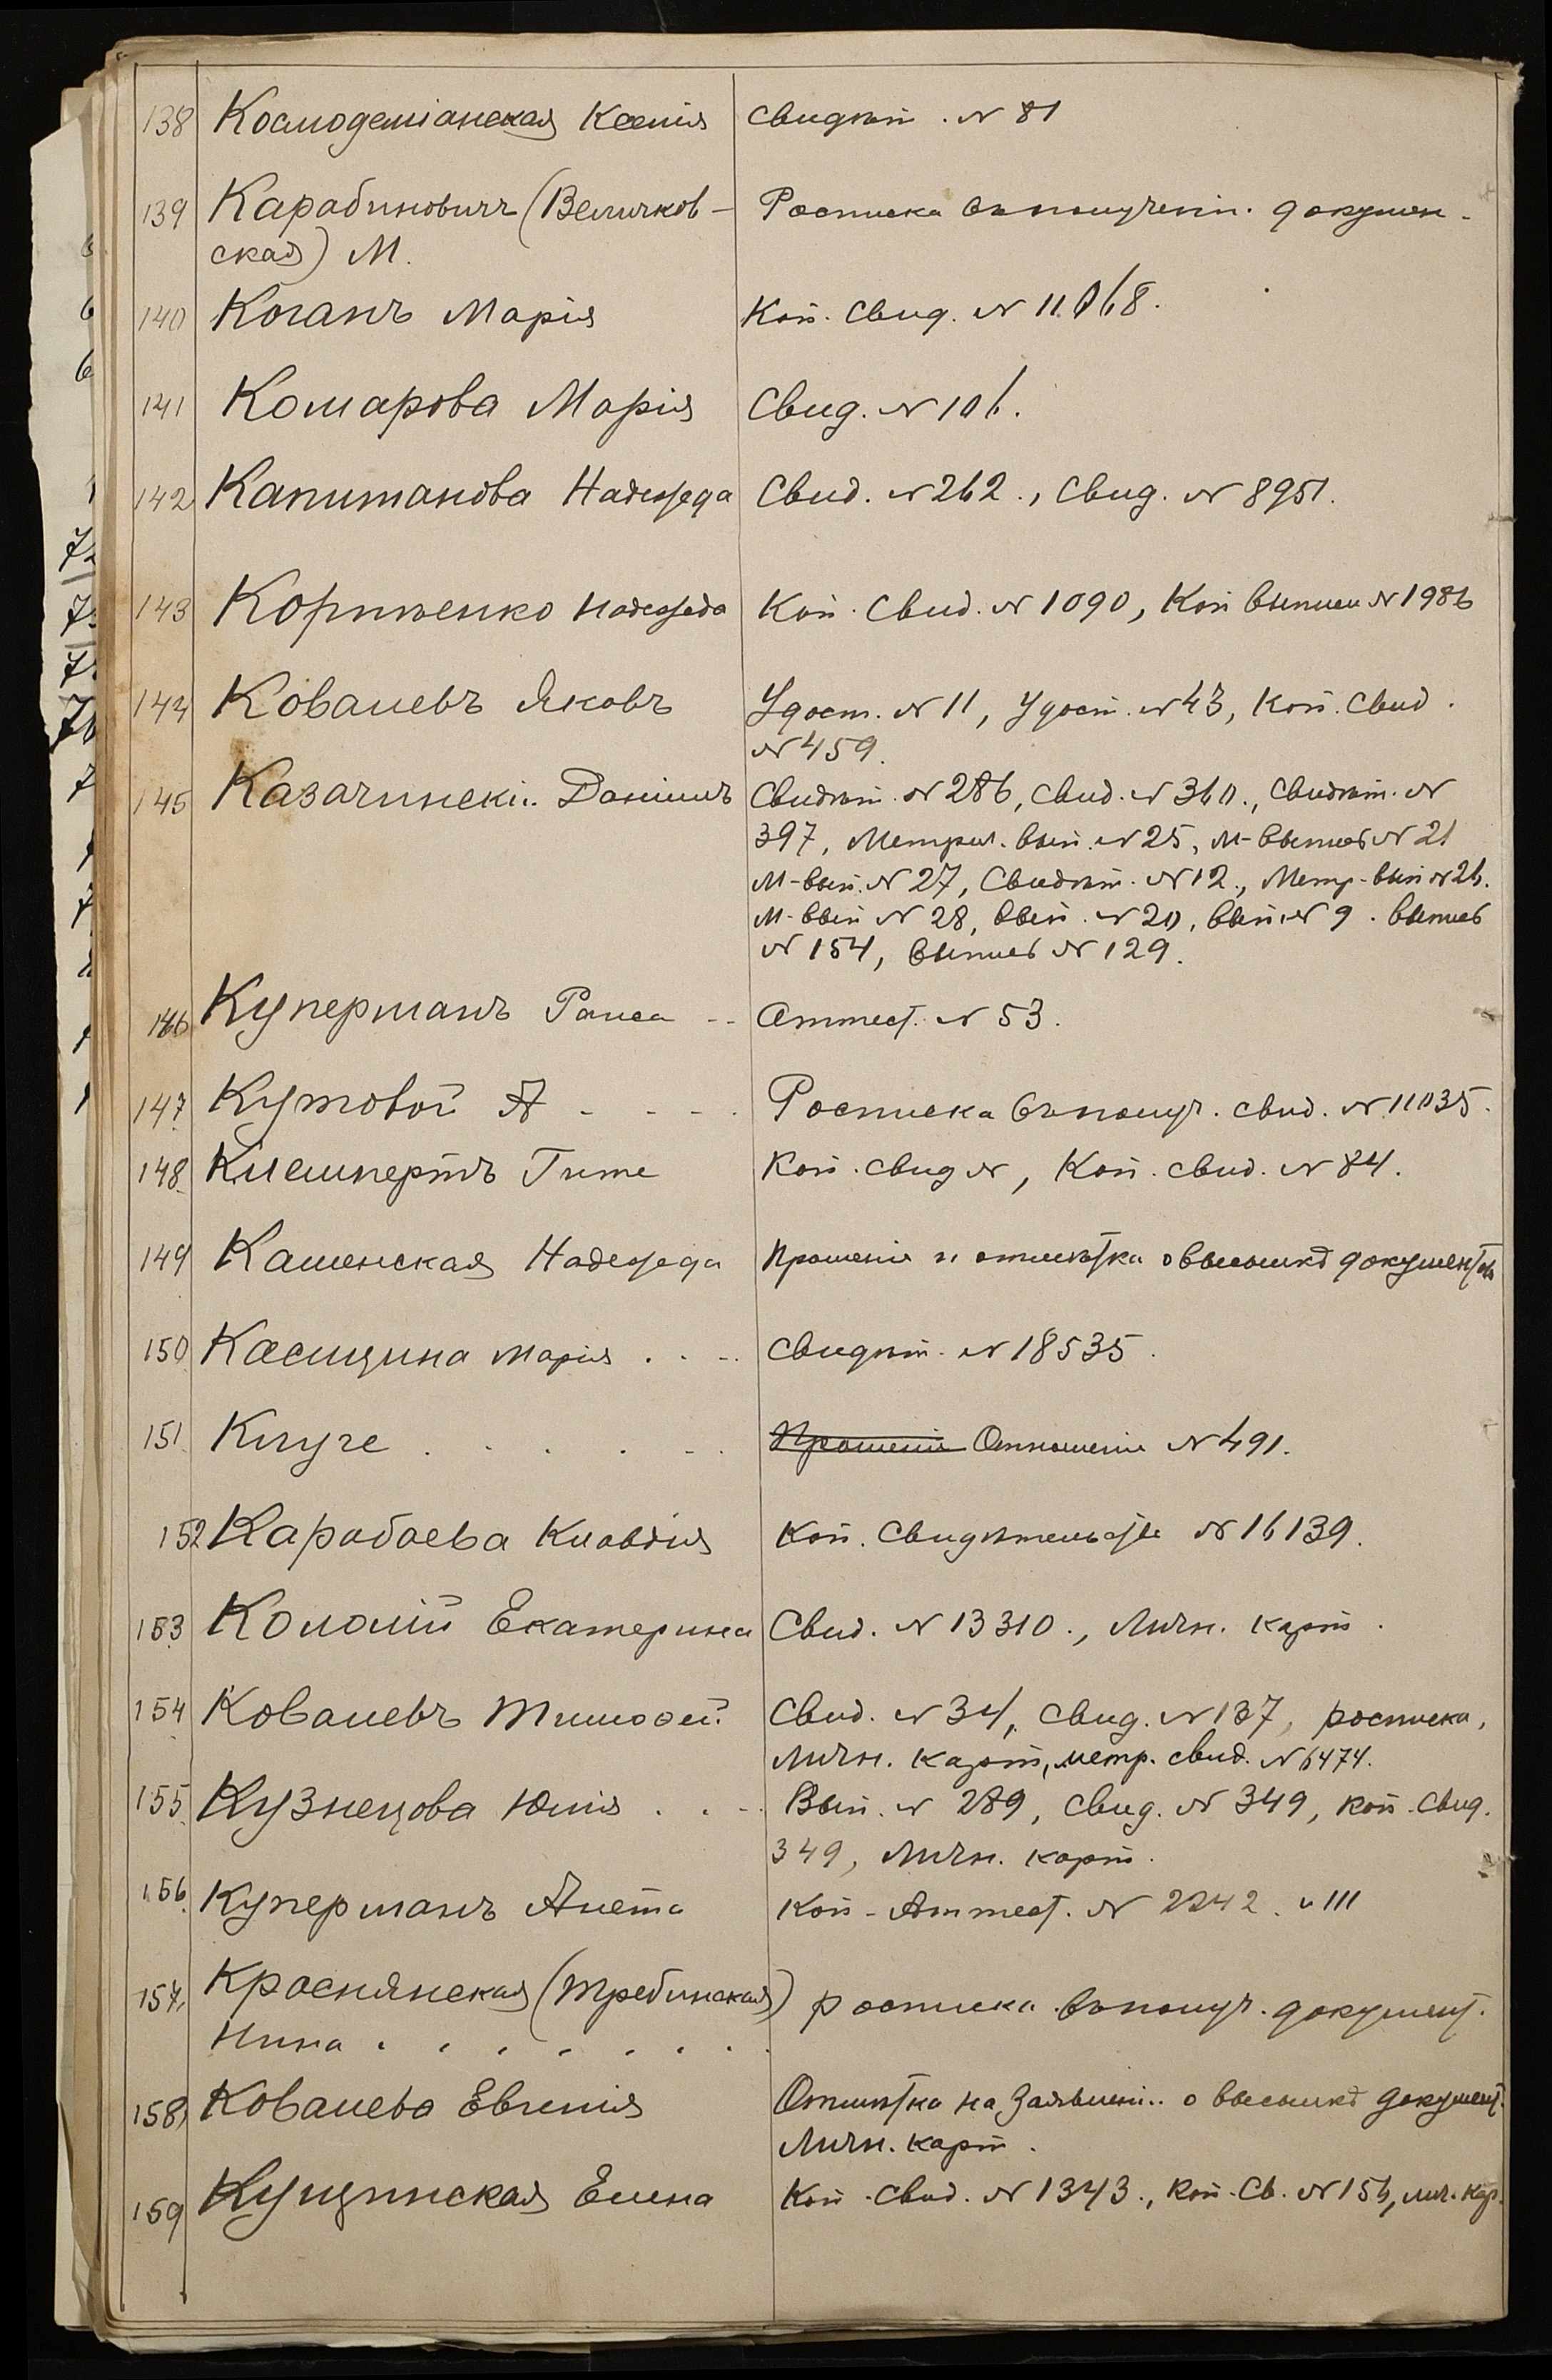 138 Космодемианская Ксенія Свидѣт. № 81
139 Карабиновичъ (Величков- Росписка въ получені. докумен-
ская) М.
140 Коганъ Марія Коп. Свид. № 11068.
141 Комарова Марія Свид. № 106.
142 Капитанова Надежда Свид. № 262., Свид. № 8951.
143 Корниенко Надежда Коп. Свид. № 1090, Коп выписи № 1986
144 Ковалевъ Яковъ Удост. № 11, Удост. № 43, Коп. Свид.
№ 459.
145 Казачинскі.. Даніилъ Свидѣт. № 286, Свид. № 360., Свидѣт. №
397, Метрич. вып. № 25, М-выпись № 21
М-вып. № 27, Свидѣт. № 12., Метр-вып № 26.
М-вып № 28, вып. № 20, вып. № 9. выпись
№ 154, выпись № 129.
146 Куперманъ Раиса -- Аттест. № 53.
147 Кутовой А - - - - Росписка въ получ. свид. № 11035.
148. Клемпертъ Гите Коп. свид №, Коп. свид. № 84.
149 Каменская Надежда Прошеніе и отмѣтка о высылкѣ документовъ
150 Касицина Марія . . -. Свидѣт. № 18535.
151. Клуге . . . . - . Прошеніе Отношеніе № 491.
152 Карабаева Клавдія Коп. Свидѣтельства № 16139.
153 Коломій Екатерина Свид. № 13310., Личн. карт.
154 Ковалевъ Тимоѳей Свид. № 34, Свид. № 137, росписка,
Личн. карт, метр. свид. № 6474.
155. Кузнецова Юлія . . - . Вып. № 289, Свид. № 349, коп. Свид.
349, Личн. карт.
156. Куперманъ Анета Коп-Аттест. № 2242. и 111
157. Краснянская (Требинская) росписка въ получ. документ.
Нина . . . . . . .
158, Ковалева Евгенія Отмѣтка на Заявлені.. о высылкѣ документ.
Личн. карт.
159 Кущинская Елена Коп. Свид. № 1343., Коп. Св. № 156, лич. кар.